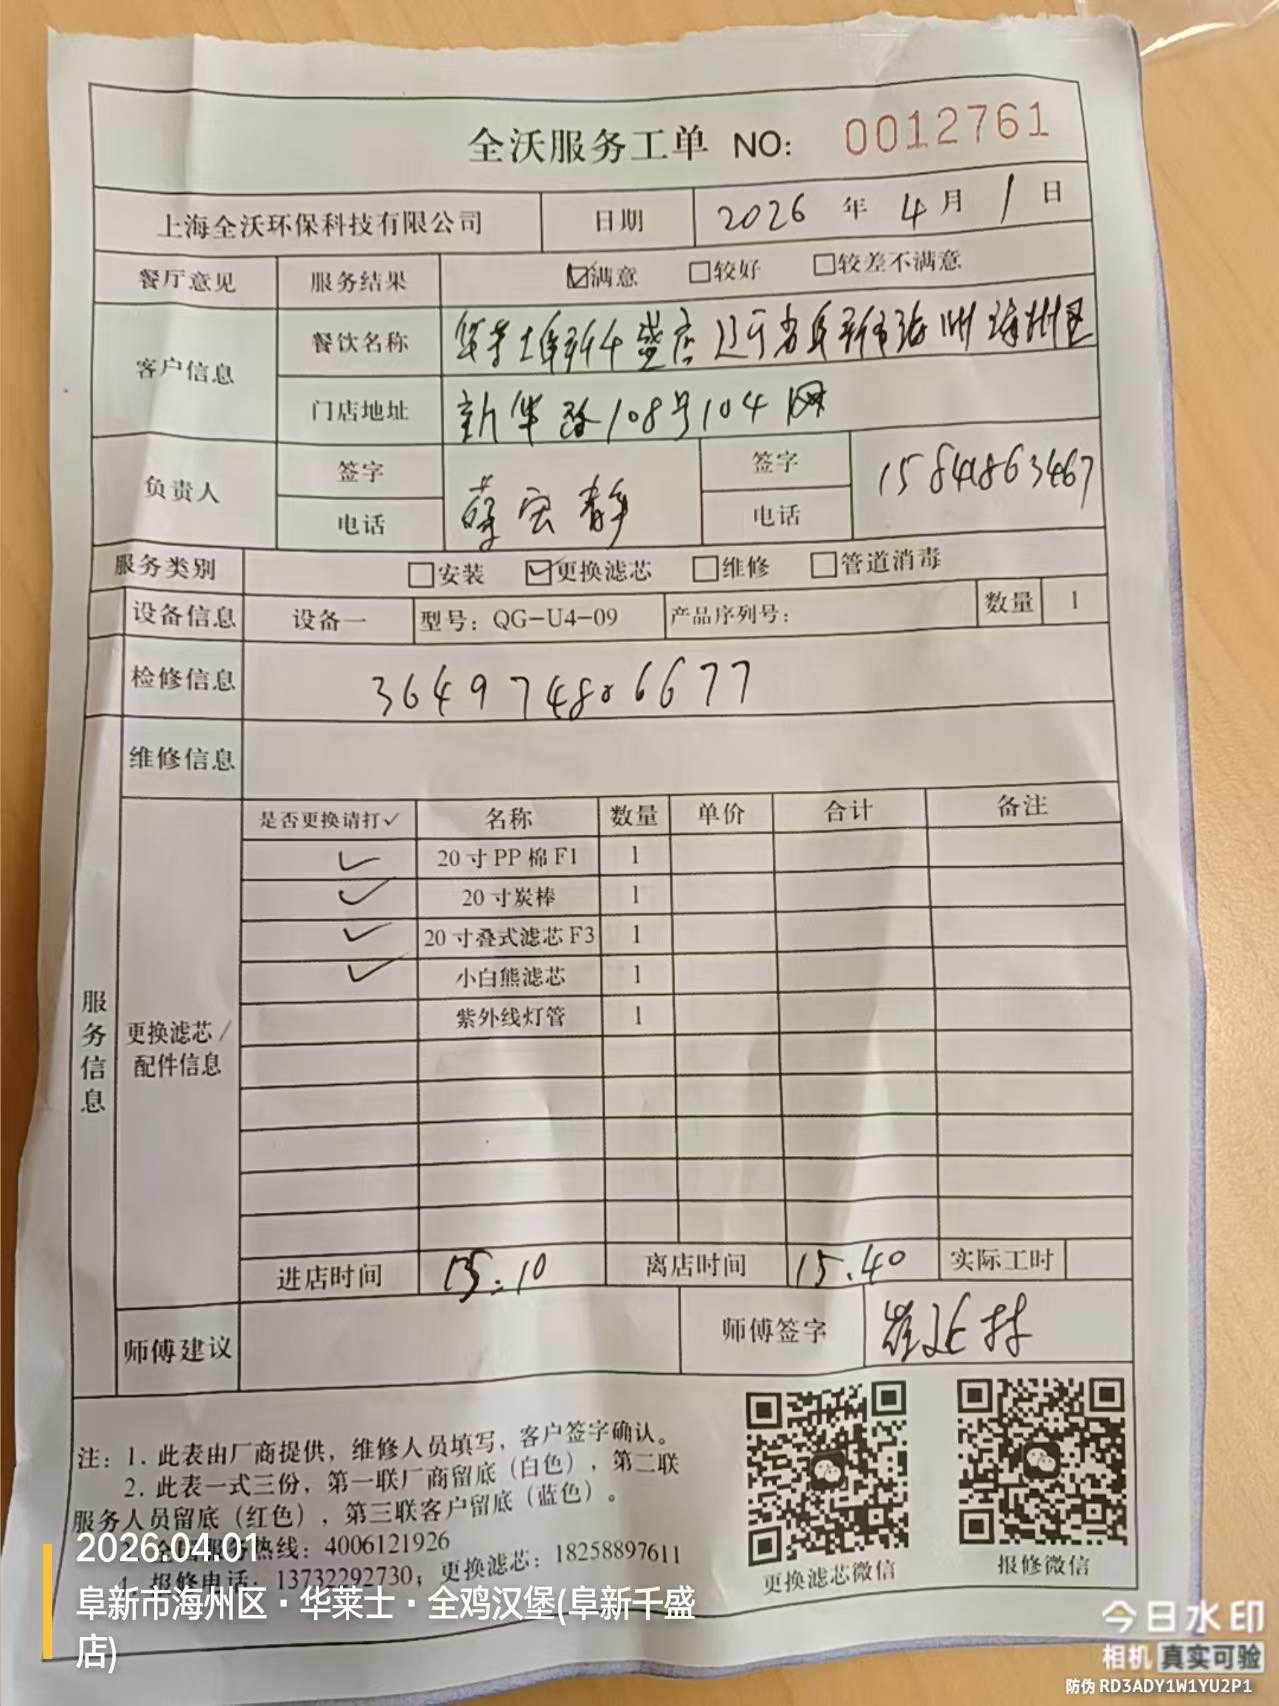 全沃服务工单 NO: 0012761
上海全沃环保科技有限公司 日期 2026 年 4 月 1 日
餐厅意见 服务结果 ☑满意 □较好 □较差不满意
客户信息 餐饮名称 华莱士阜新千盛店 辽宁省阜新市海州海州区
门店地址 新华路108号104网
负责人 签字 电话 薛宏静 签字 电话 15841863467
服务类别 □安装 ☑更换滤芯 □维修 □管道消毒
设备信息 设备一 型号: QG-U4-09 产品序列号: 数量 1
检修信息 364974806677
维修信息
服务信息 更换滤芯/配件信息
是否更换请打✓ 名称 数量 单价 合计 备注
✓ 20寸PP棉F1 1
✓ 20寸炭棒 1
✓ 20寸叠式滤芯F3 1
✓ 小白熊滤芯 1
紫外线灯管 1
进店时间 15:10 离店时间 15.40 实际工时
师傅建议 师傅签字
注: 1. 此表由厂商提供, 维修人员填写, 客户签字确认。
2. 此表一式三份, 第一联厂商留底(白色), 第二联
服务人员留底(红色), 第三联客户留底(蓝色)。
热线: 4006121926
4. 报修电话: 13732292730; 更换滤芯: 18258897611
更换滤芯微信 报修微信
2026.04.01
阜新市海州区·华莱士·全鸡汉堡(阜新千盛
店)
今日水印
相机 真实可验
防伪 RD3ADY1W1YU2P1